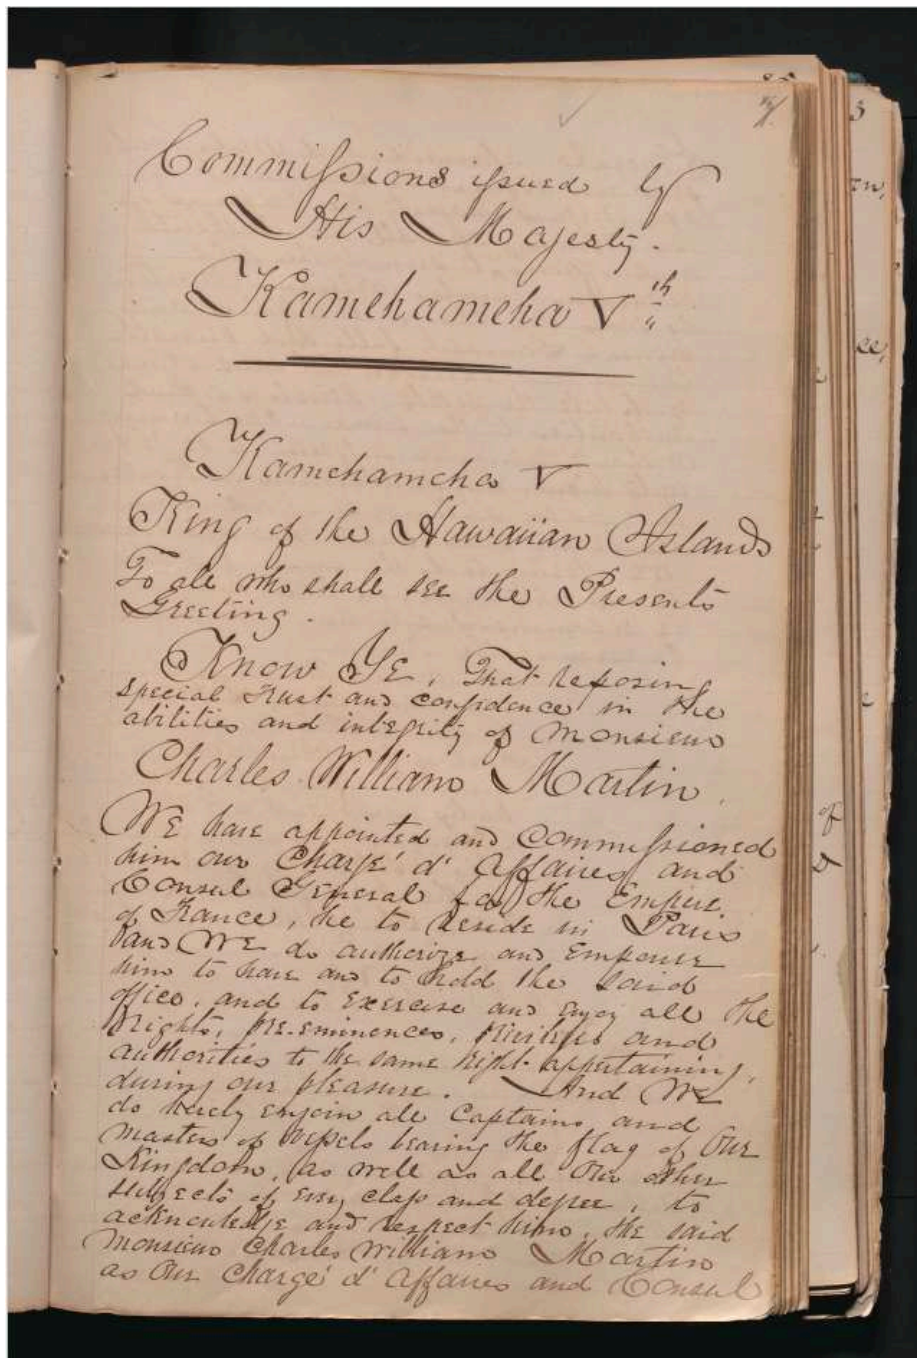 Commissions issued by
His Majesty.
Kamehameha Vth
Kamehameha V
King of the Hawaiian Islands
To all who shall see the Presents
Greeting.
Know Ye, That reposing
special trust and confidence in the
abilities and integrity of Monsieur
Charles William Martin,
We have appointed and commissioned
him our Chargé d' Affaires and
Consul General for the Empire
of France, he to reside in Paris
and We do authorize and Empower
him to have and to hold the said
office, and to exercise and enjoy all the
Rights, pre-eminences, privileges and
authorities to the same right appertaining,
during our pleasure. And We
do hereby enjoin all Captains and
masters of vessels bearing the flag of Our
Kingdom, as well as all Our other
subjects of every class and degree, to
acknowledge and respect him, the said
Monsieur Charles William Martin
as Our Chargé d' Affaires and Consul